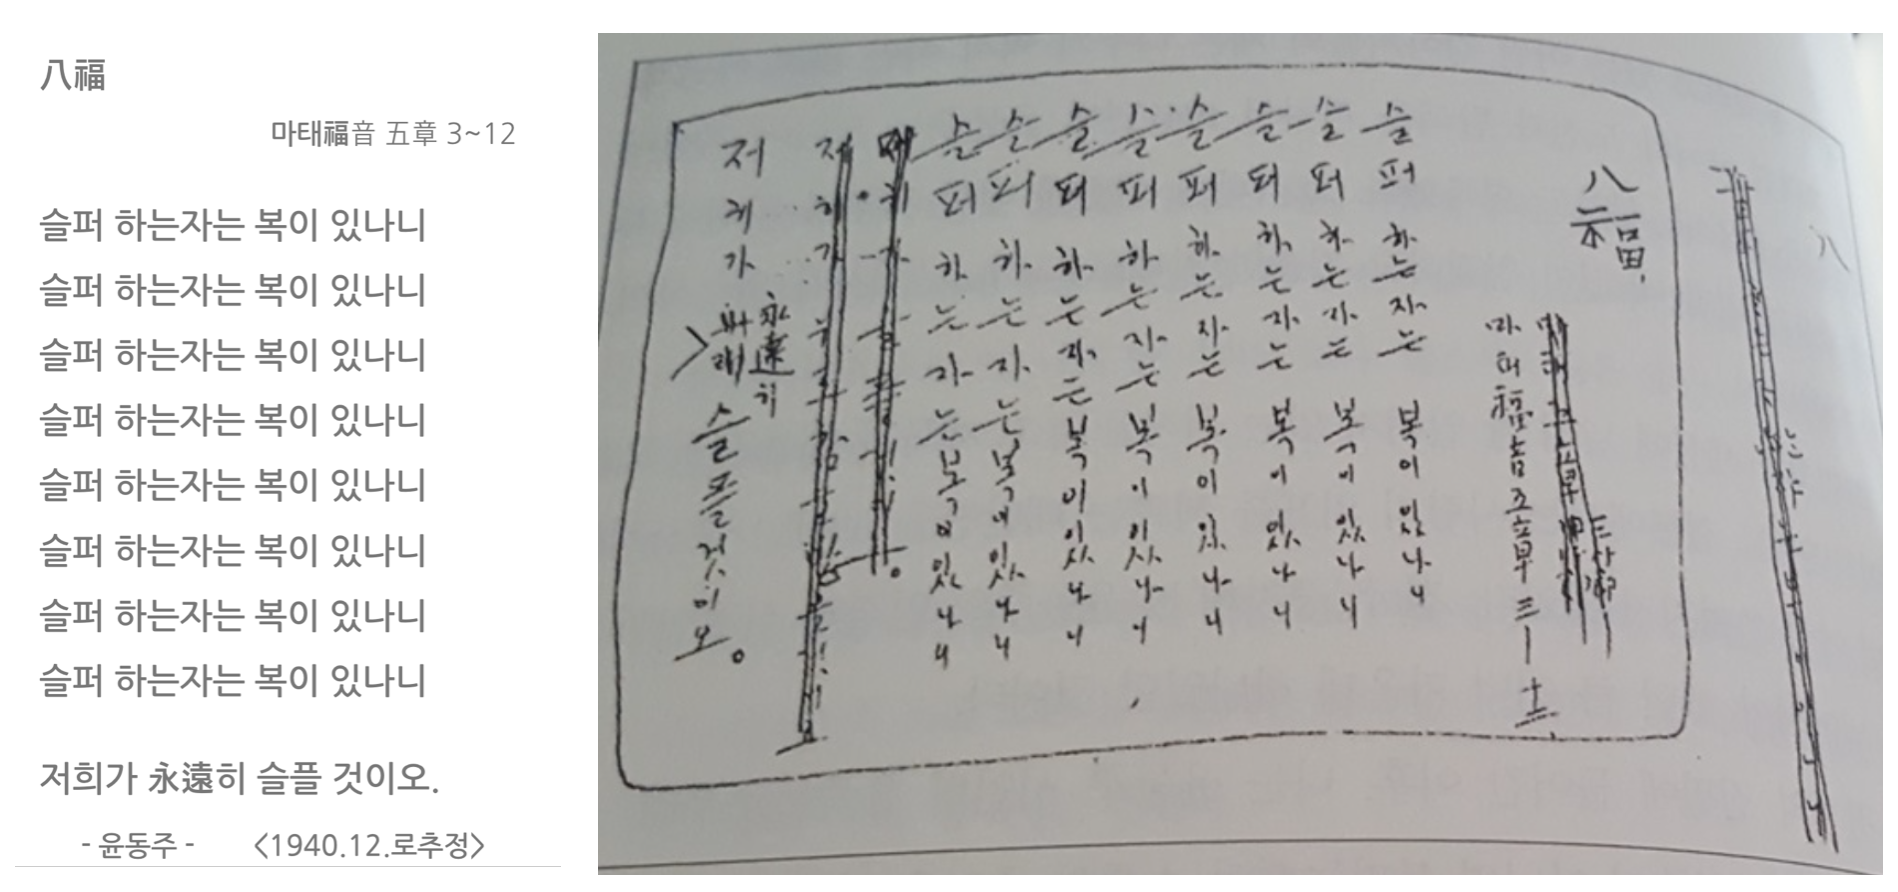 八福
마태福音 五章 3~12
슬퍼 하는자는 복이 있나니
슬퍼 하는자는 복이 있나니
슬퍼 하는자는 복이 있나니
슬퍼 하는자는 복이 있나니
슬퍼 하는자는 복이 있나니
슬퍼 하는자는 복이 있나니
슬퍼 하는자는 복이 있나니
슬퍼 하는자는 복이 있나니
저희가 永遠히 슬플 것이오.
- 윤동주 - <1940.12.로추정>
八福
마태福音五章三—十二
슬퍼하는자는 복이있나니
슬퍼하는자는 복이있나니
슬퍼하는자는 복이있나니
슬퍼하는자는 복이있나니
슬퍼하는자는 복이있나니
슬퍼하는자는 복이있나니
슬퍼하는자는 복이있나니
슬퍼하는자는 복이있나니
저히가 永遠히 슬플것이오。